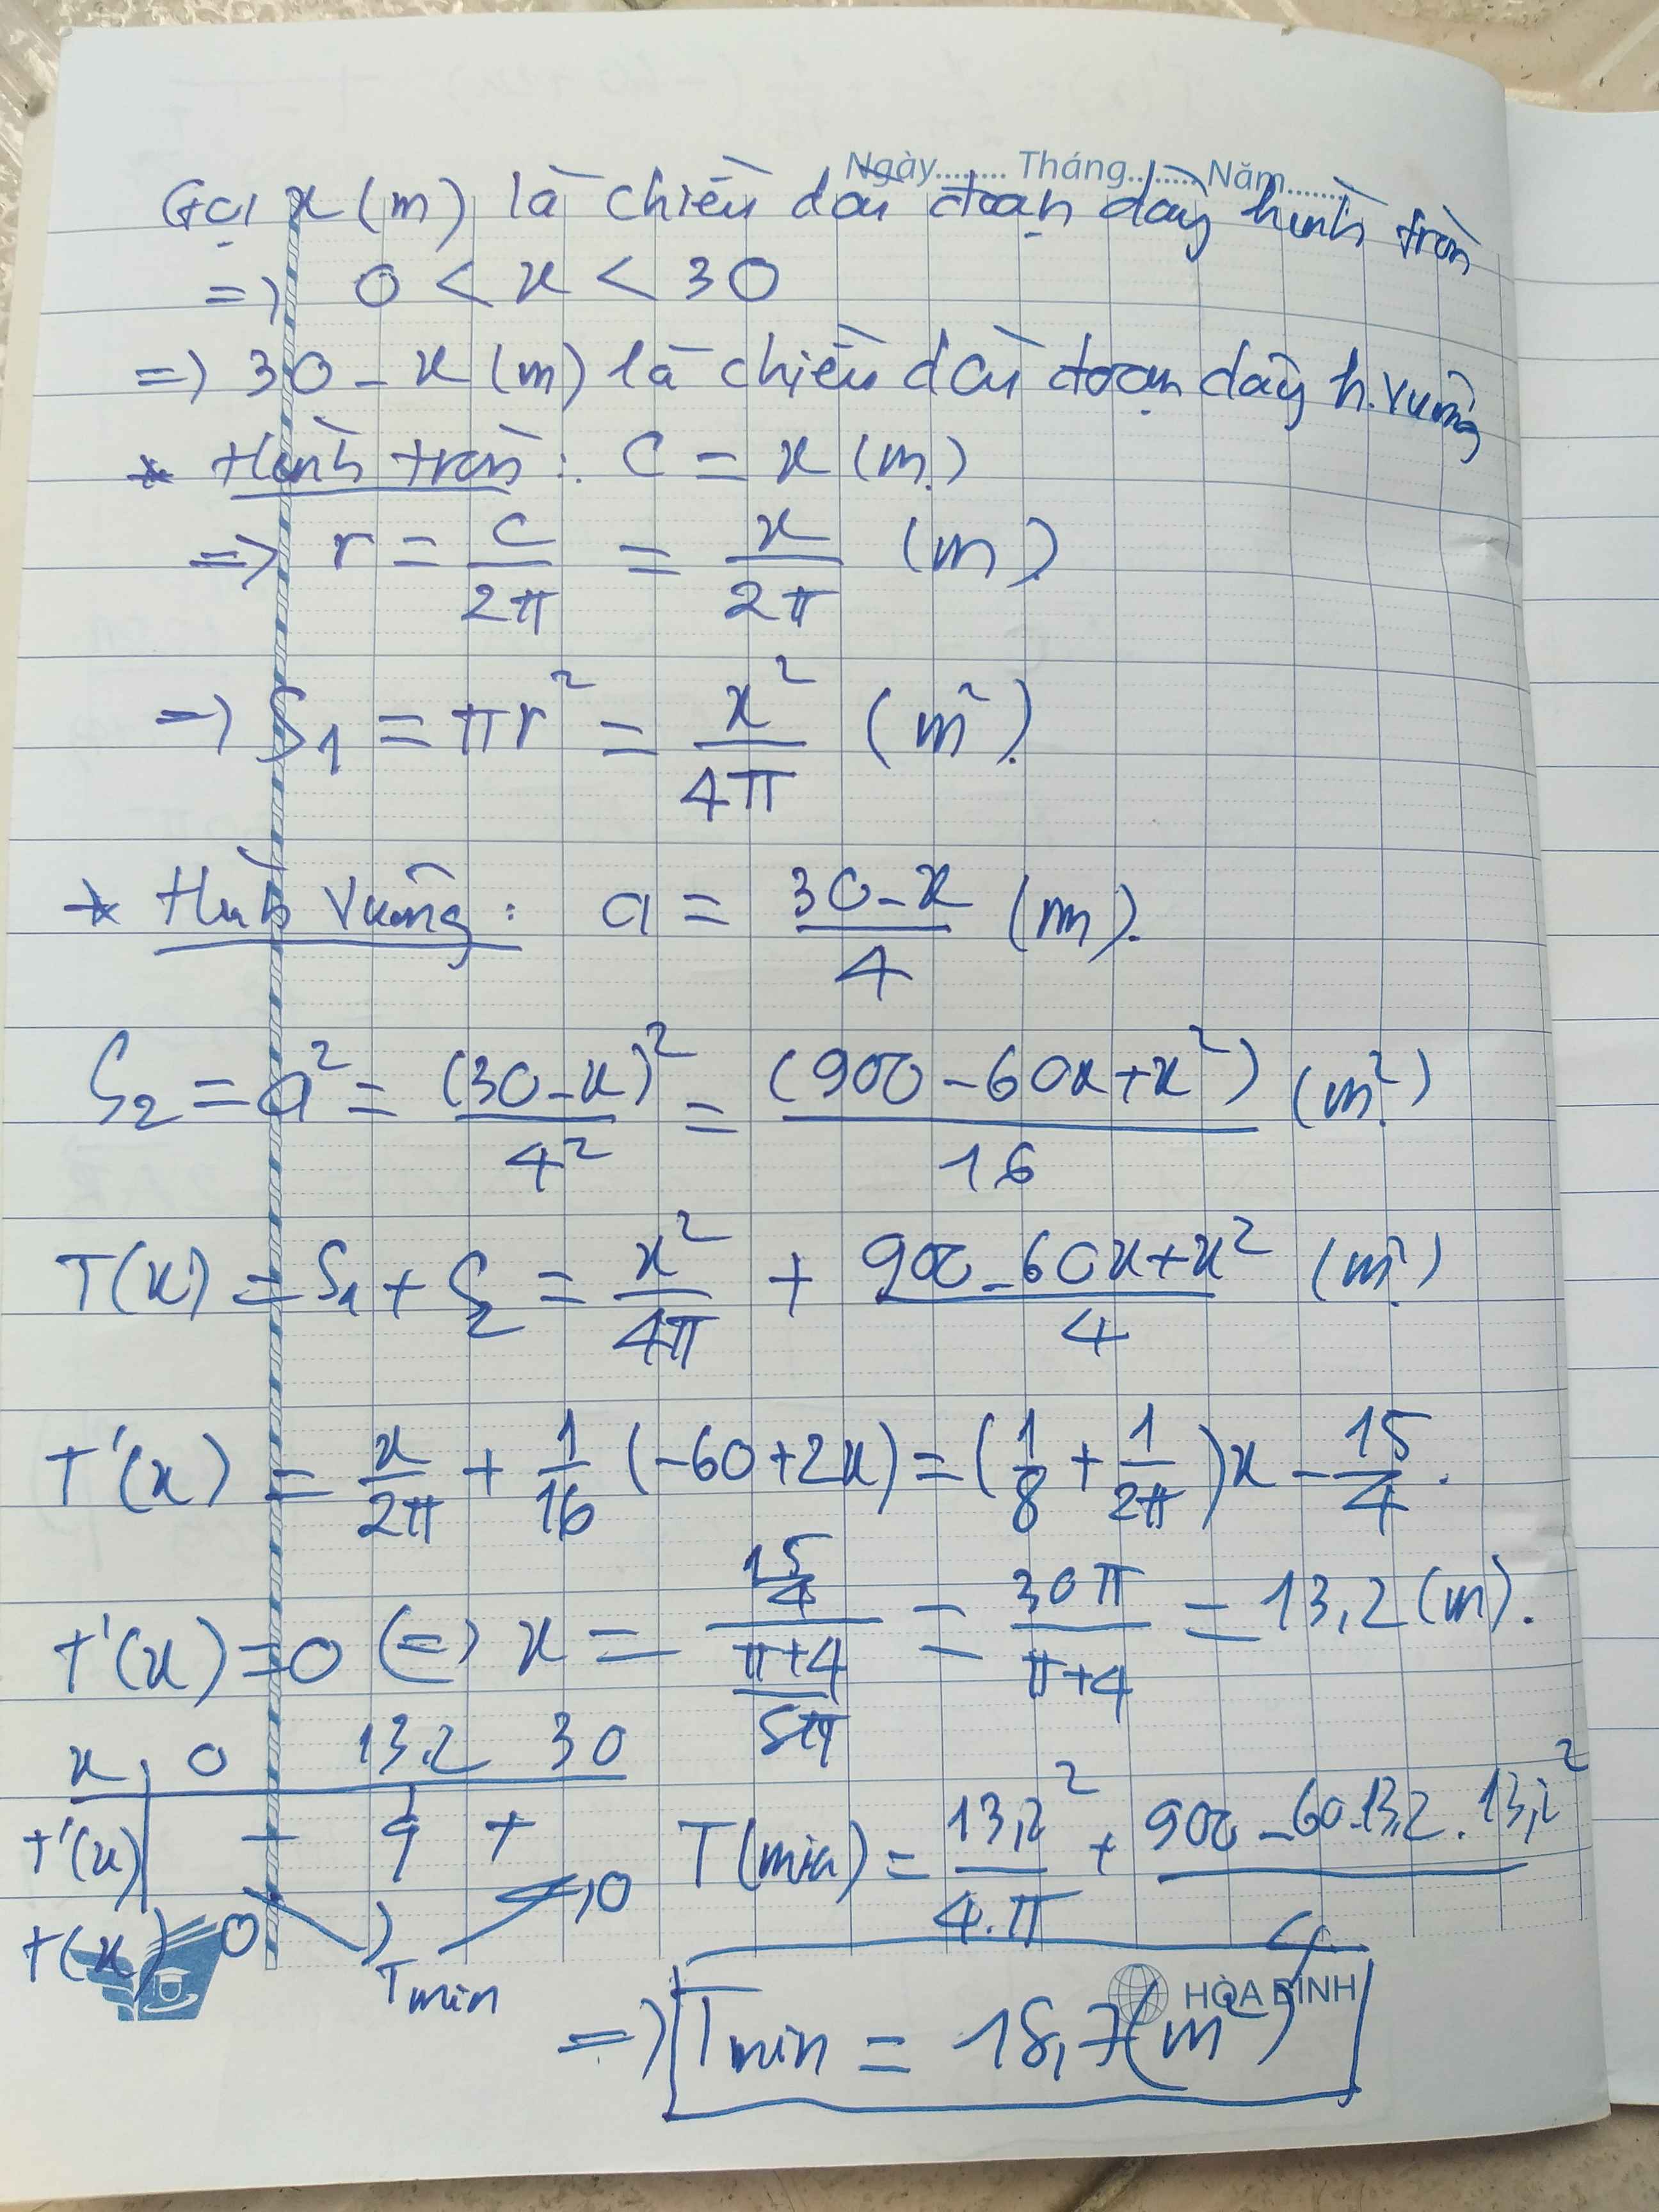 Ngày........ Tháng........ Năm........
Gọi x (m) là chiều dài đoạn dây hình tròn
=> 0 < x < 30
=> 30 - x (m) là chiều dài đoạn dây h.vuông
* Hình tròn: C = x (m)
=> r = C/2π = x/2π (m)
=> S₁ = πr² = x²/4π (m²).
* Hình vuông: a = (30-x)/4 (m).
S₂ = a² = (30-x)²/4² = (900-60x+x²)/16 (m²)
T(x) = S₁ + S₂ = x²/4π + (900-60x+x²)/4 (m²)
T'(x) = x/2π + 1/16 (-60+2x) = (1/8 + 1/2π)x - 15/4.
T'(x) = 0 (=) x = (15/4)/((π+4)/8π) = 30π/(π+4) = 13,2 (m).
x 0 13,2 30
T'(x) - 0 +
T(x) 0 Tmin 0
T(min) = 13,2²/4.π + (900-60.13,2.13,2²)/4
=> Tmin = 18,7(m²)
HÒA BÌNH